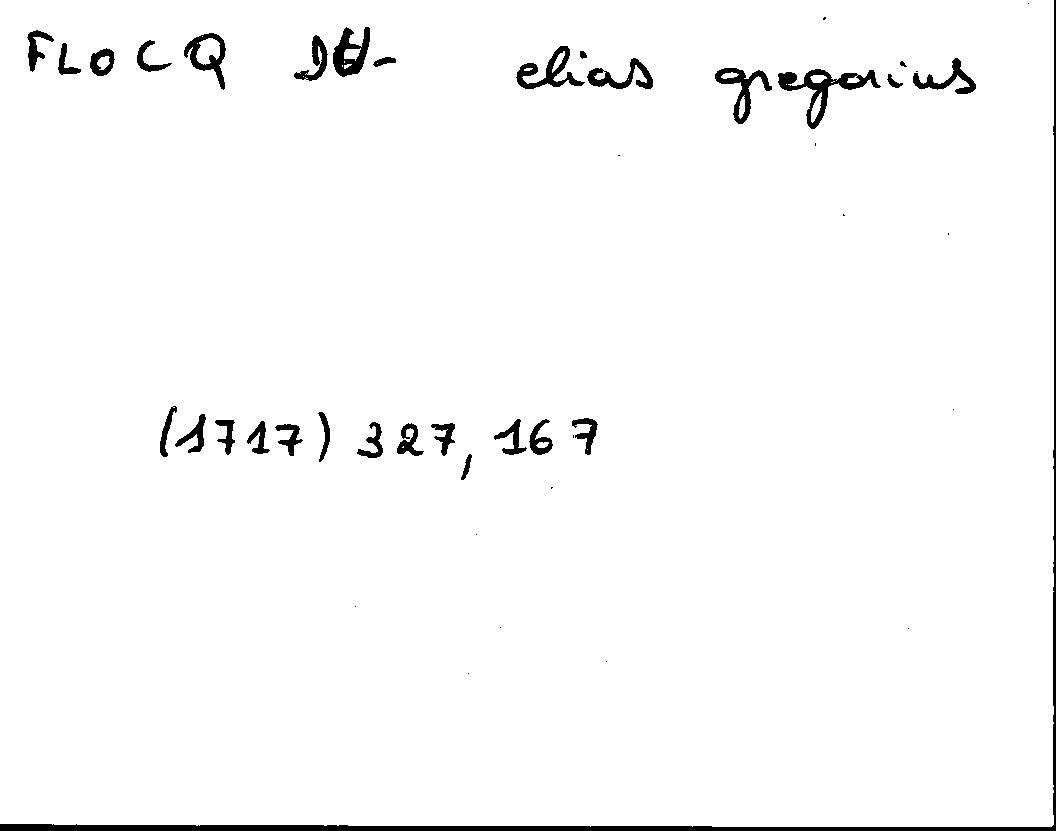 FLOCQ DU- elias gregorius
(1717) 327, 167